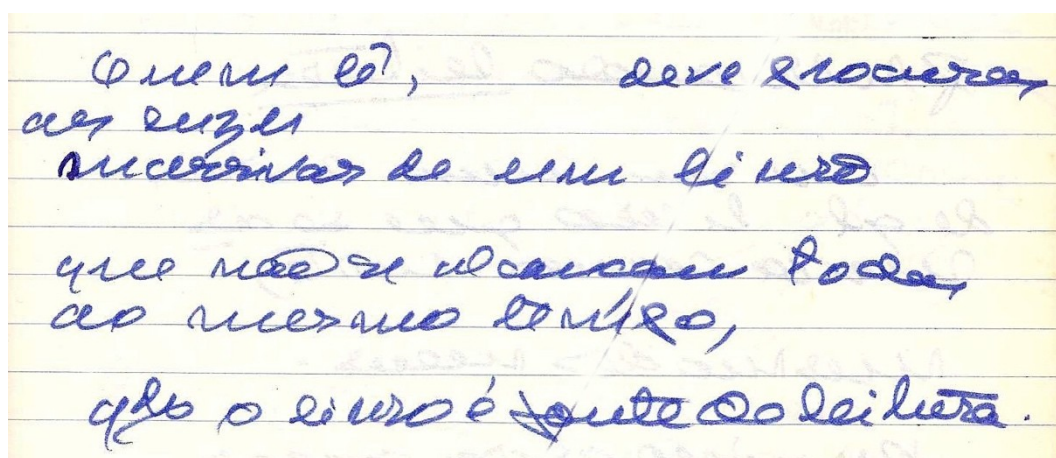 Quem lê, deve procurar
as luzes
de um livro
que não se alcançam todas
ao mesmo tempo,
qdo o livro é fonte da leitura.